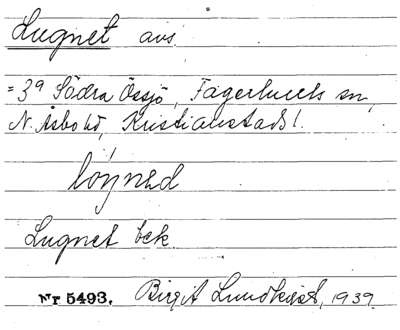 Lugnet avs.
= 3ª Södra Össjö, Fagerhults sn,
N. Åsbo hd, Kristianstads l.
Lugnet bek.
Nr 5493. Birgit Lundkvist, 1939.